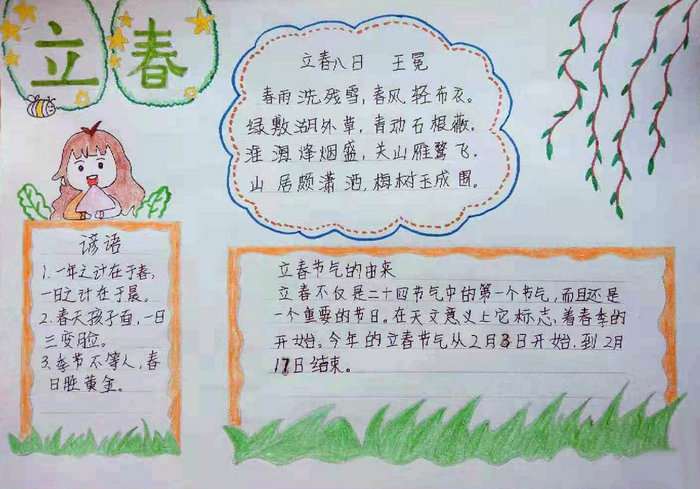 立春
立春八日 王冕
春雨洗残雪,春风轻布衣。
绿敷湖外草,青动石根薇。
淮海烽烟盛,关山雁鹭飞.
山居颇潇洒,梅树玉成围。
谚语
1.一年之计在于春,
一日之计在于晨。
2.春天孩子面,一日
三变脸。
3.季节不等人,春
日胜黄金。
立春节气的由来
立春不仅是二十四节气中的第一个节气,而且还是
一个重要的节日。在天文意义上它标志着春季的
开始。今年的立春节气从2月3日开始,到2月
17日结束。